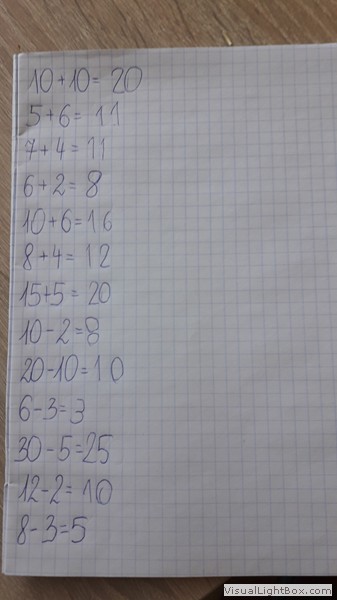 10+10= 20
5+6= 11
7+4= 11
6+2= 8
10+6=16
8+4= 12
15+5= 20
10-2=8
20-10=10
6-3=3
30-5=25
12-2= 10
8-3=5
VisualLightBox.com